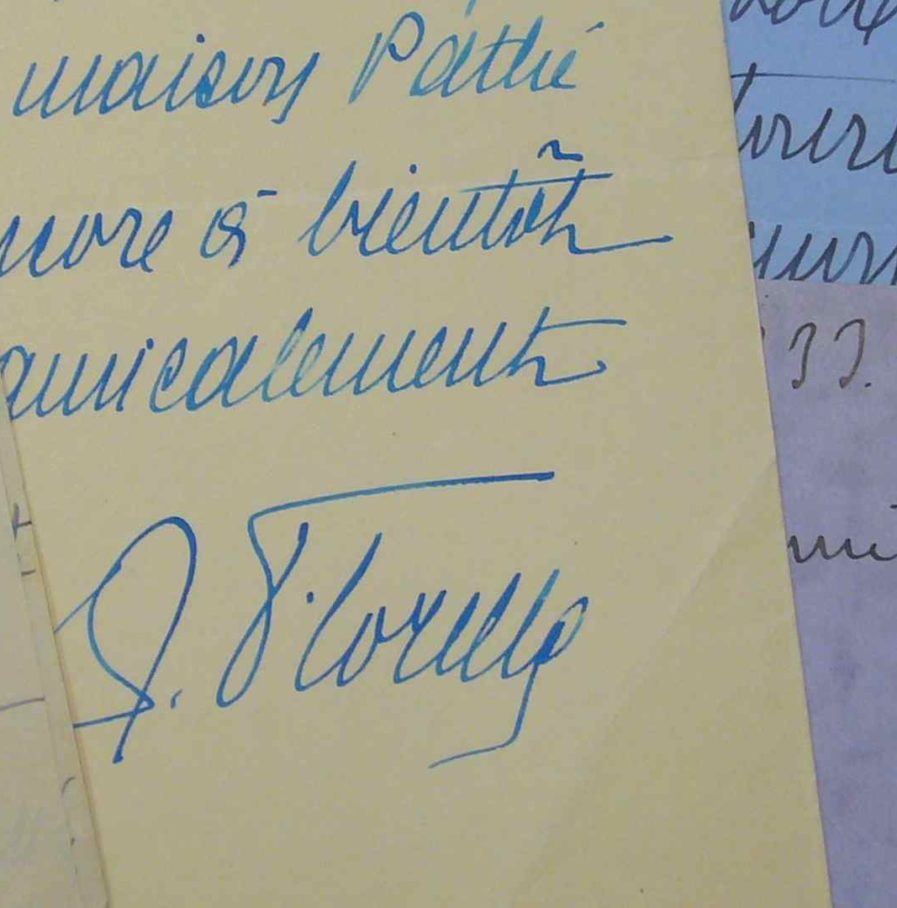 maison Pathé
ncore à bientôt
amicalement
O. Florelle
33.